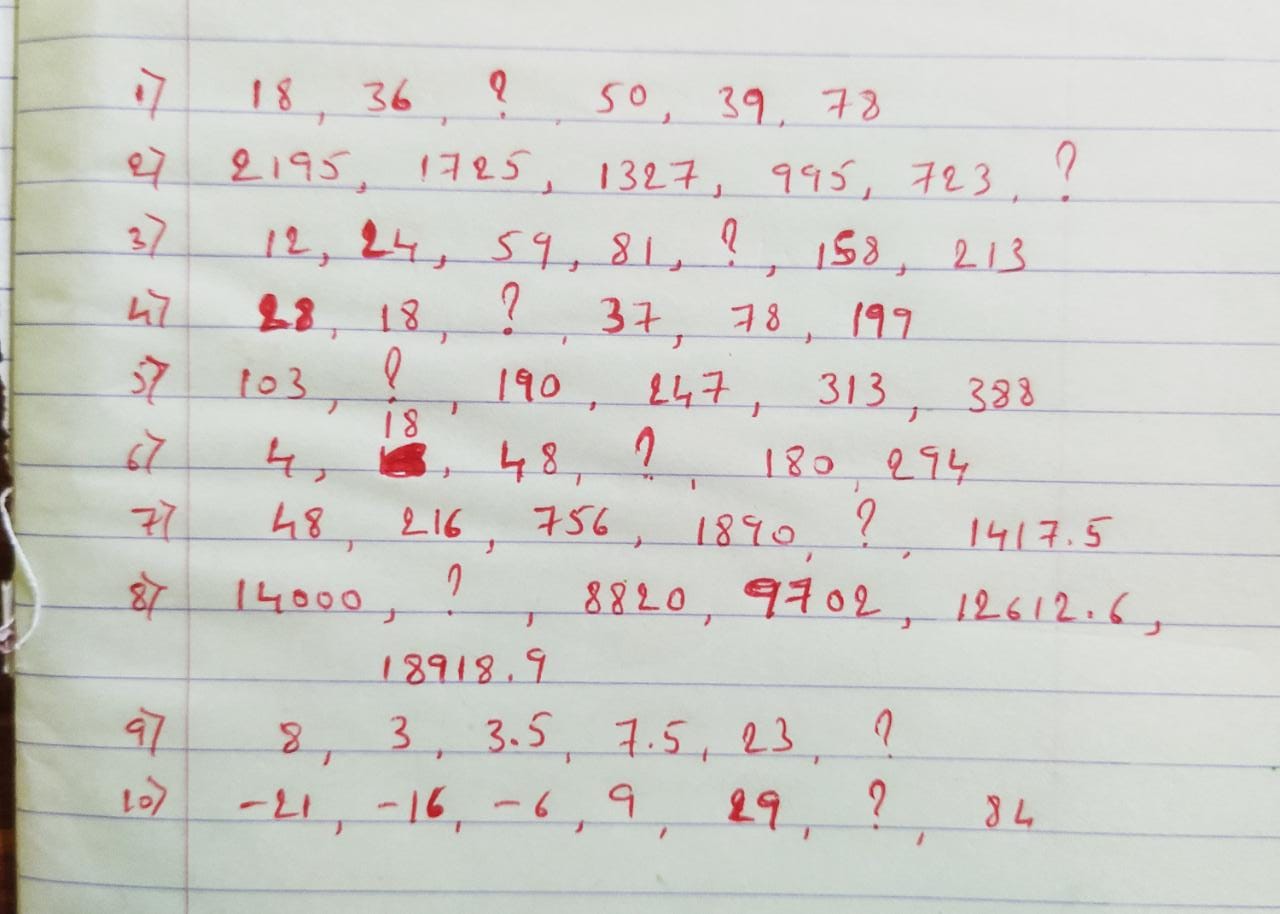 1) 18, 36, ?, 50, 39, 78
2) 2195, 1725, 1327, 995, 723, ?
3) 12, 24, 59, 81, ?, 158, 213
4) 28, 18, ?, 37, 78, 199
5) 103, ?, 190, 247, 313, 388
6) 4, 18, 48, ?, 180, 294
7) 48, 216, 756, 1890, ?, 1417.5
8) 14000, ?, 8820, 9702, 12612.6,
18918.9
9) 8, 3, 3.5, 7.5, 23, ?
10) -21, -16, -6, 9, 29, ?, 84